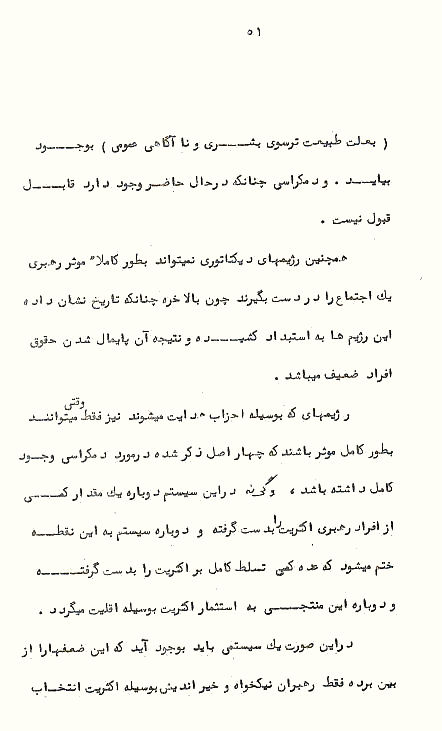 ۵۱
( بعلت طبیعت ترسوی بشـــری و نا آگاهی عمومی ) بوجـــود
بیایـــد . و دمکراسی چنانکه درحال حاضر وجود دارد قابـــل
قبول نیست .
همچنین رژیمهای دیکتاتوری نمیتواند بطور کاملا" موثر رهبری
یك اجتماع را در دست بگیرند چون بالاخره چنانکه تاریخ نشان داده
این رژیم ها به استبداد کشیـــده و نتیجه آن پایمال شدن حقوق
افراد ضعیف میباشد .
رژیمهای که بوسیله احزاب هدایت میشوند نیز فقط وقتی میتواننـد
بطور کامل موثر باشند که چهار اصل ذکر شده درمورد دمکراسی وجـود
کامل داشته باشد ، وگرنه دراین سیستم دوباره یك مقدار کمـــی
از افراد رهبری اکثریت را بدست گرفته و دوباره سیستم به این نقطـــه
ختم میشود که عده کمی تسلط کامل بر اکثریت را بدست گرفتـــه
و دوباره این منتجـــی به استثمار اکثریت بوسیله اقلیت میگردد .
دراین صورت یك سیستمی باید بوجود آید که این ضعفهارا از
بین برده فقط رهبران نیکخواه و خیر اندیش بوسیله اکثریت انتخـاب